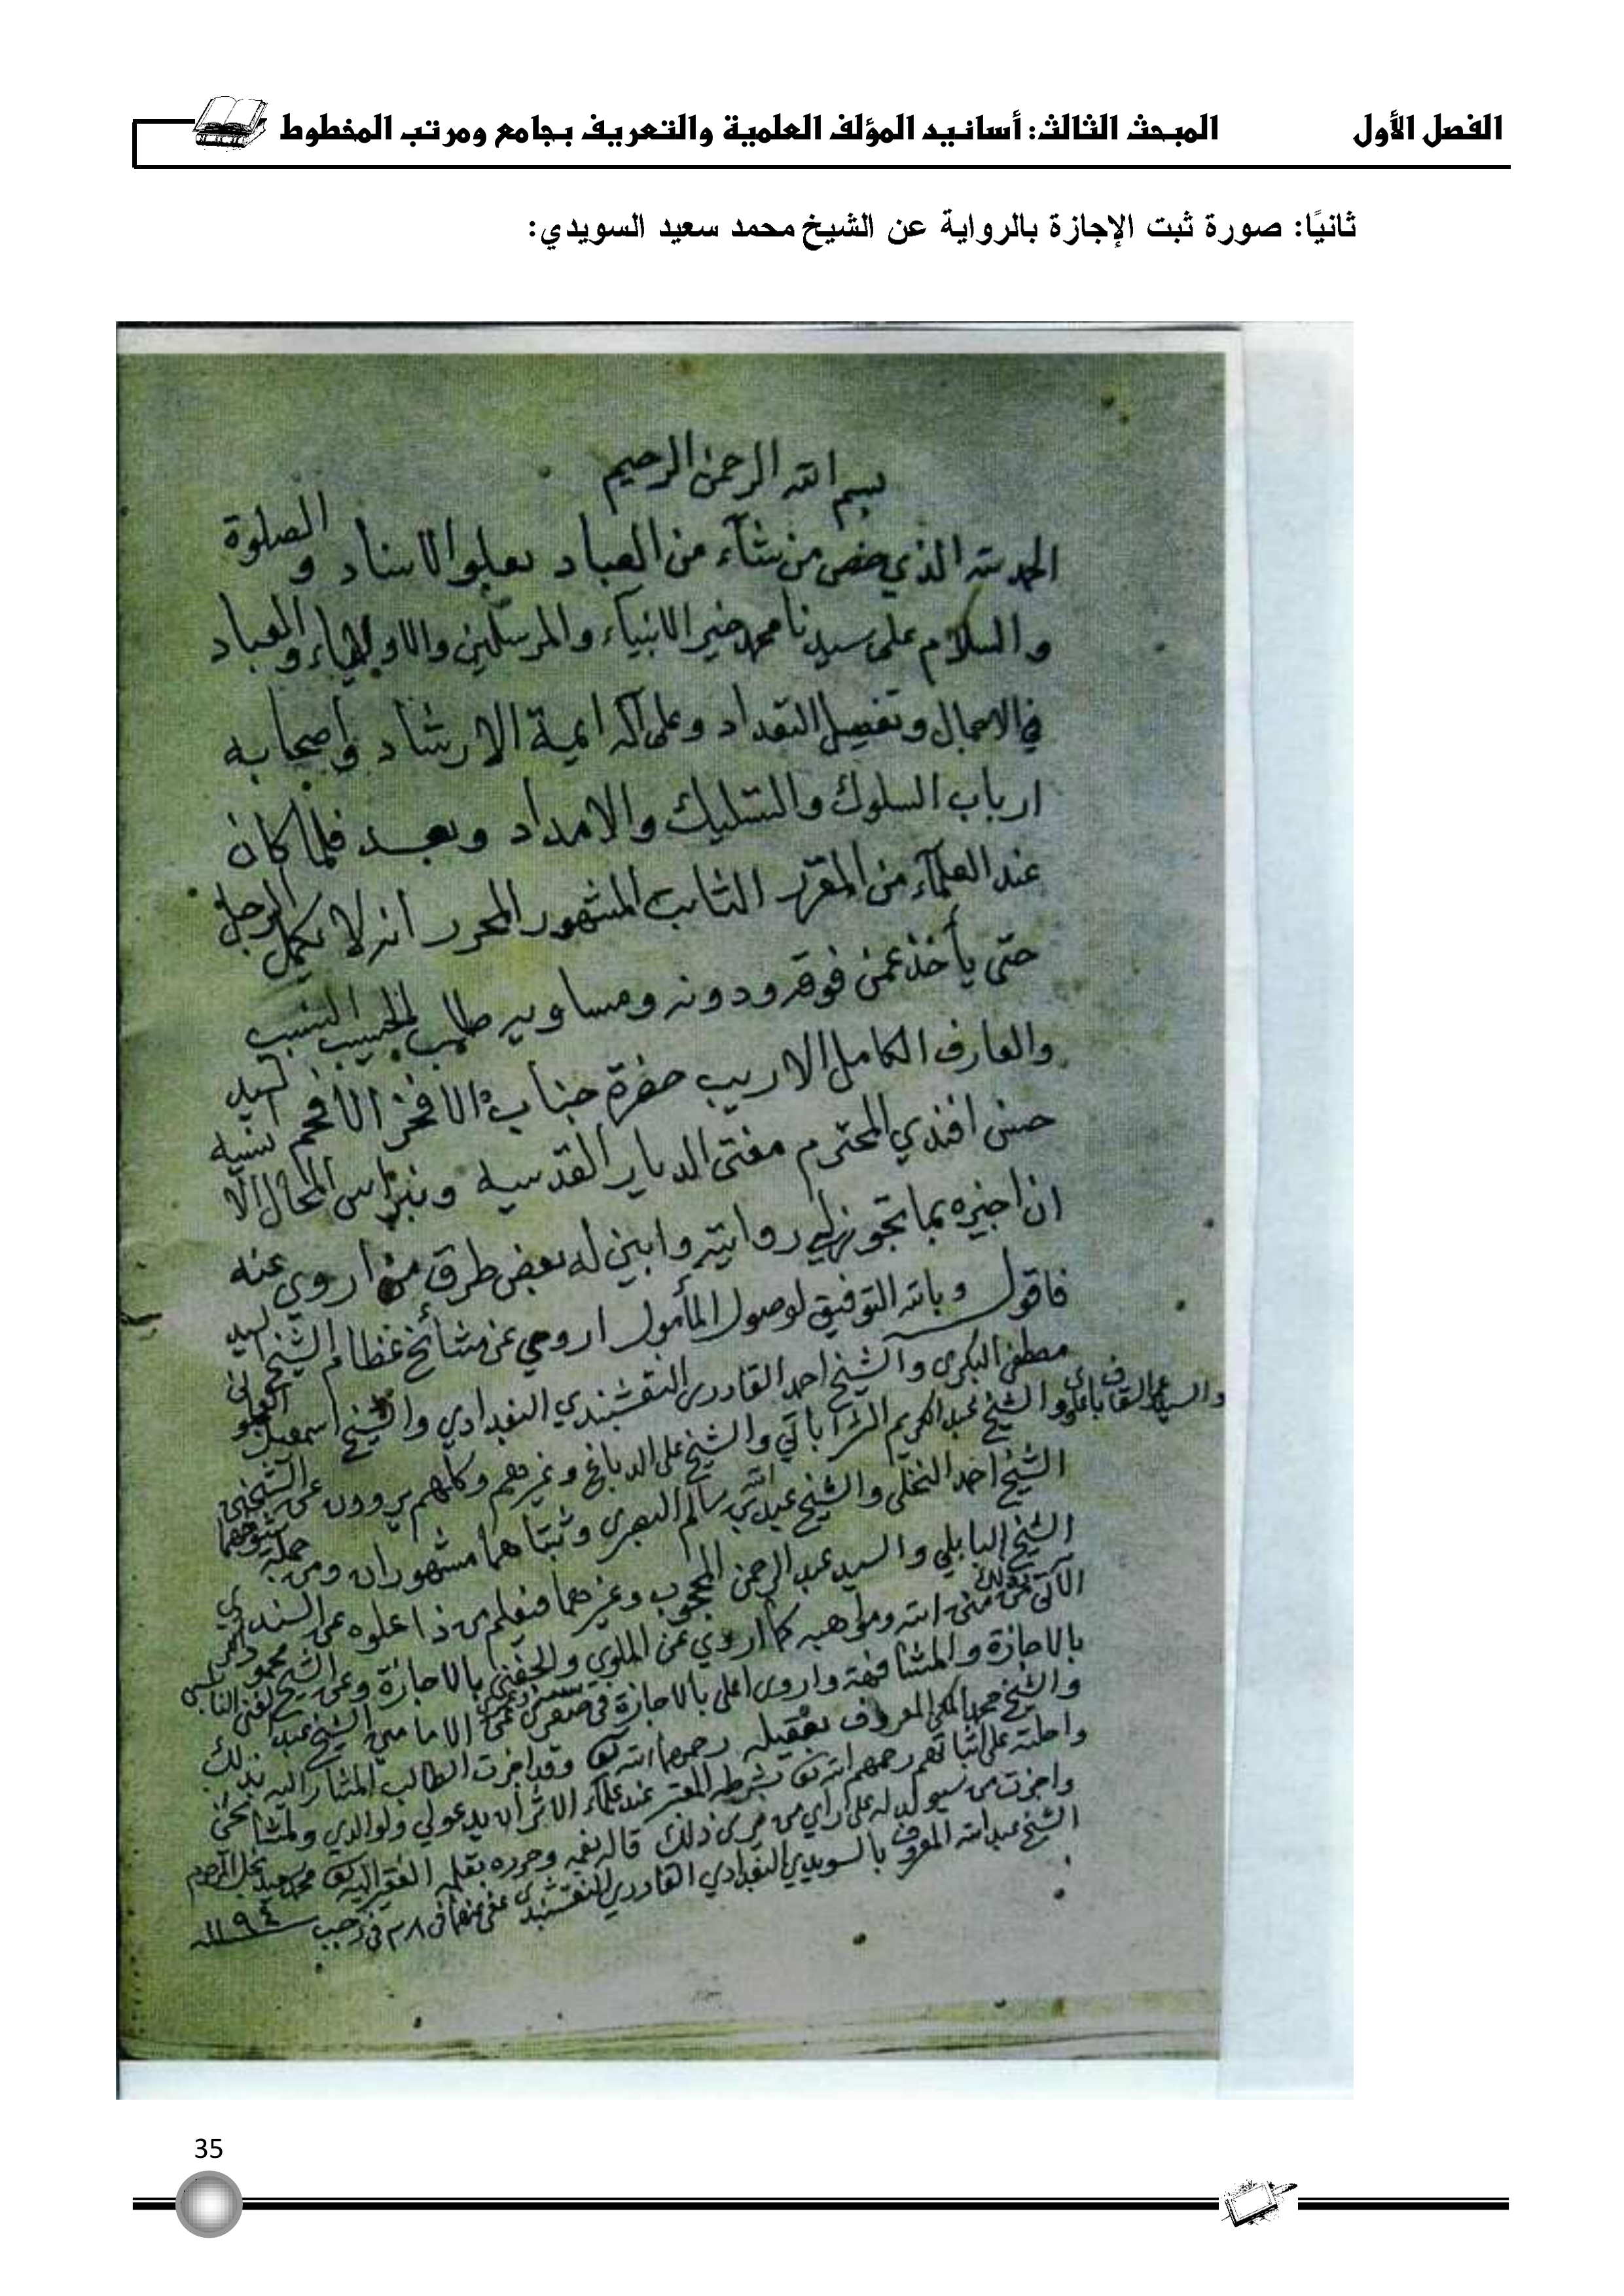 الفصل الأول المبحث الثالث: أسانيد المؤلف العلمية والتعريف بجامع ومرتب المخطوط
ثانيًا: صورة ثبت الإجازة بالرواية عن الشيخ محمد سعيد السويدي:
بسم الله الرحمن الرحيم
الحمد لله الذي خص من شآء من العباد بعلو الاسناد و الصلوة
والسلام على سيدنا محمد خير الانبياء والمرسلين والاولياء والعباد
في الاجمال وتفصيل التعداد وعلى آله ايمة الارشاد واصحابه
ارباب السلوك والتسليك والامداد وبعد فلما كان
عند العلمآء من المقرر الثابت المشهور المحرر انه لا يكمل الرجل
حتى يأخذ عمن فوقه ودونه ومساويه طلب الحبيب النسيب
والعارف الكامل الاريب حضرة جناب الافخر الافخم السيد
حسن افندي المحترم مفتى الديار القدسيه ونبراس المحال
ان اجيزه بما تجوز لي روايته وابين له بعض طرق من اروي عنه
فاقول وبالله التوفيق لوصول المأمول اروي عن مشائخ عظام الشيخ السيد
مصطفى البكرى والشيخ احمد القادرى النقشبندي البغدادي والشيخ اسمعيل العجلوانى
والشيخ عبد الكريم الشراباتي والشيخ على الدباغ وغيرهم وكلهم يروون عن الشيخين
الشيخ احمد النخلى والشيخ عبد الله بن سالم البصرى وثبتاهما مشهوران ومن جملة شيوخهما
الشيخ البابلي والسيد عبد الرحمن المحجوب وغيرهما فنعلم من ذا علوه عن السندي
ومواهبه كما اروي عن الملوي والحفنى بالاجازة وعن الشيخ محمود
بالاجازة والمشافهة واروى اعلى بالاجازة في صغرى عن الامامين الشيخ عبد الغنى النابلسى
والشيخ محمد المكى المعروف بعقيله رحمهما الله تعالى وقد اجزت الطالب المشار اليه بذلك
واحلته على اثباتهم رحمهم الله تعالى بشرطه المعتبر عند علمآء الاثر ان يدعو لي ولوالدي ولمشائخى
واجزت من سيولد له على راي من يرى ذلك قاله بفمه وحرره بقلمه الفقير اليه تعالى محمد سعيد نجل المرحوم
الشيخ عبد الله المعروف بالسويدي البغدادي القادري النقشبندى عفى عنهما في ٢٨ في رجب ١١٩٤
35